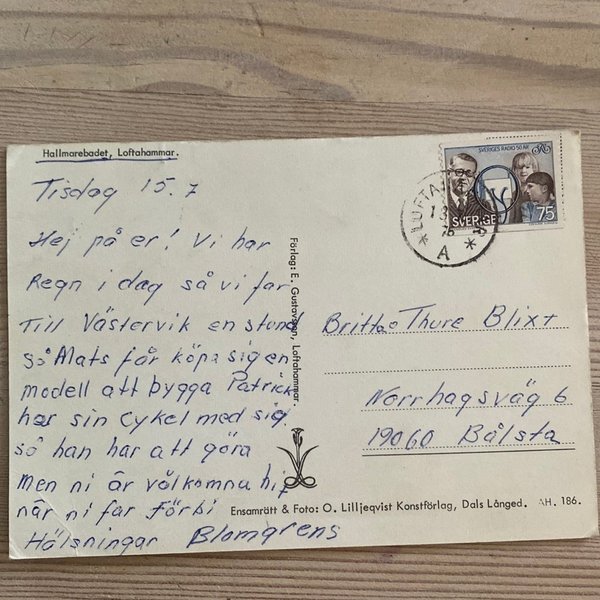 Hallmarebadet, Loftahammar.
Tisdag 15.7
Hej på er! Vi har
Regn i dag så vi far
Till Västervik en stund
så Mats får köpa sig en
modell att bygga Patrick
har sin Cykel med sig.
så han har att göra
Men ni är välkomna hit
när ni far Förbi
Hälsningar Blomgrens
Förlag: E. Gustavsson, Loftahammar.
SVERIGES RADIO 50 ÅR
SVERIGE
75
LOFTA
A
Britta o Thure Blixt
Norrhagsväg 6
19060 Bålsta
Ensamrätt & Foto: O. Lilljeqvist Konstförlag, Dals Långed. AH. 186.